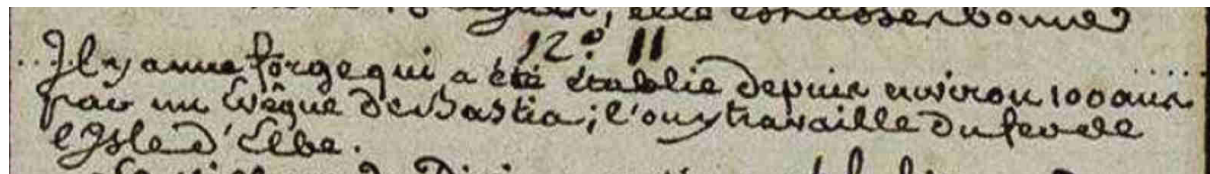 elle est assez bonne
12.° 11
Il y a une forge qui a été établie depuis environ 100 ans
par un Evêque de Bastia; l'on y travaille du fer de
l'Isle d'Elbe.